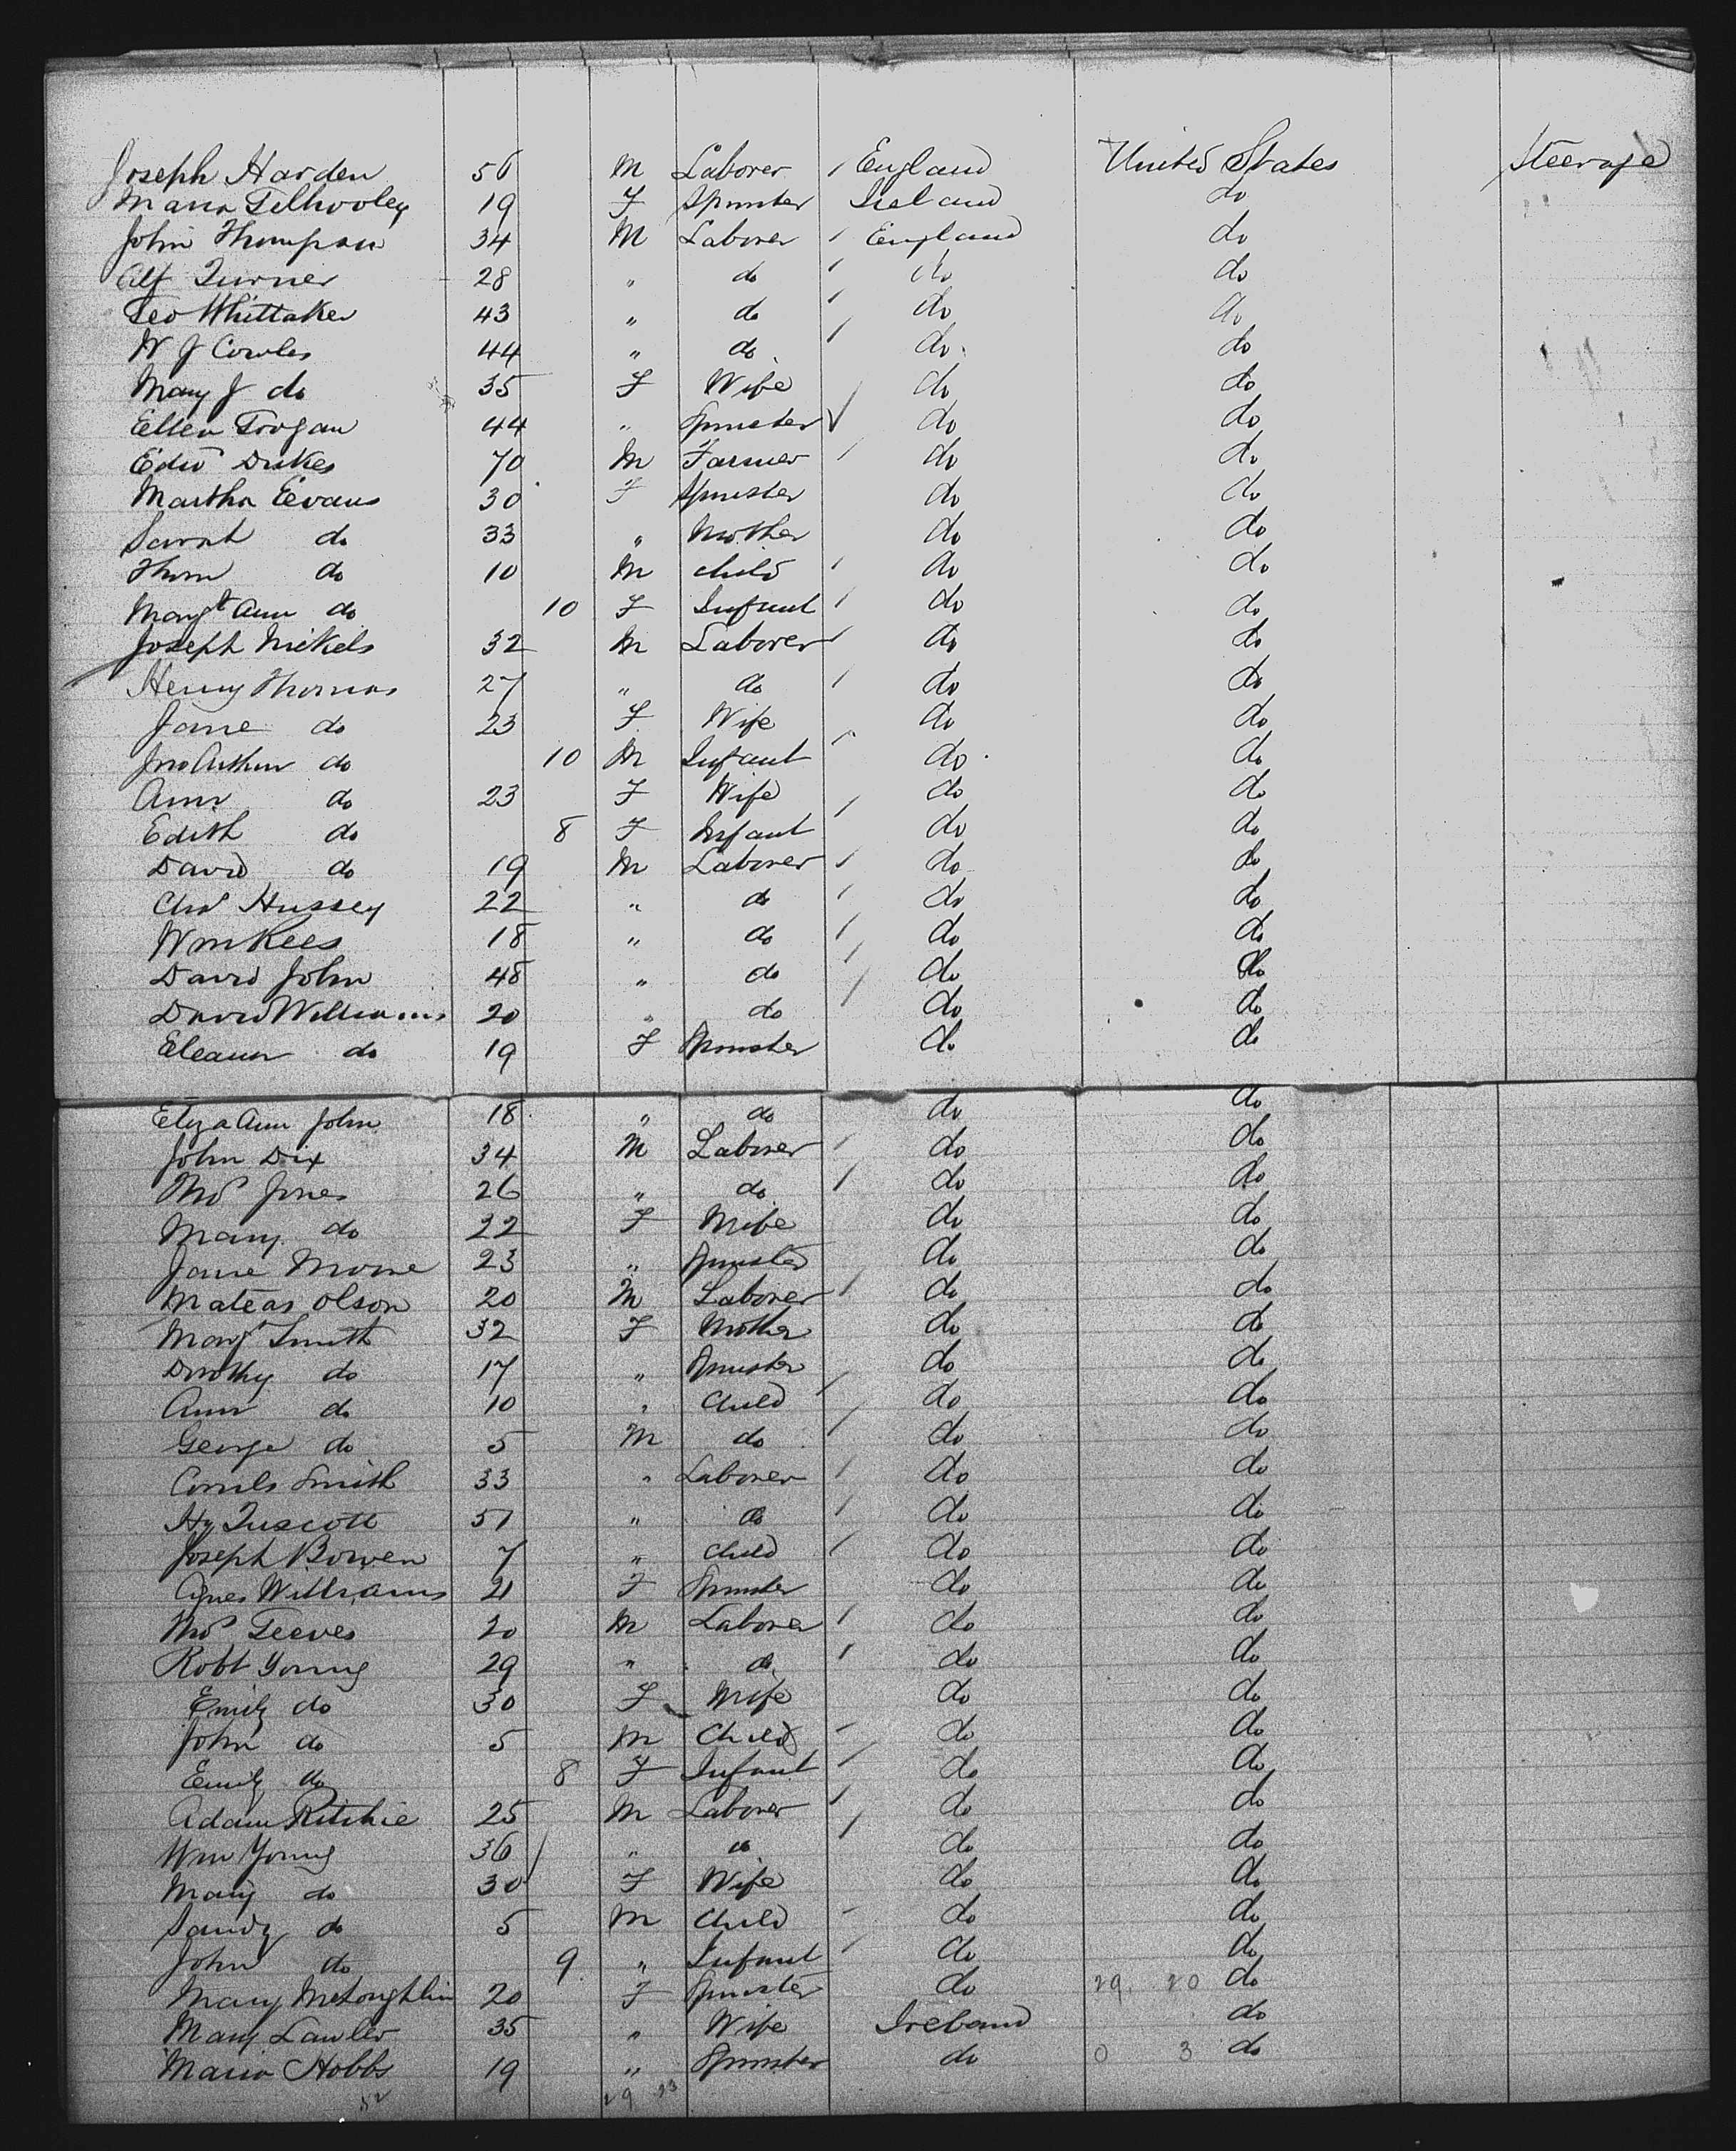 Joseph Harden 56 M Laborer England United States Steerage
Maria 19 F Spinster Ireland do
John Thompson 34 M Laborer England do
Alf Turner 28 " do do do
Geo Whittaker 43 " do do do
W J Cowles 44 " do do do
Mary J do 35 F Wife do do
Ellen Grogan 44 " Spinster do do
Edwd Dukes 70 M Farmer do do
Martha Evans 30 F Spinster do do
Sarah do 33 " Mother do do
Thom do 10 M child do do
Margt Ann do 10 F Infant do do
Joseph Nickels 32 M Laborer do do
Henry Thomas 27 " do do do
Jane do 23 F Wife do do
Jno Arthur do 10 M Infant do do
Ann do 23 F Wife do do
Edith do 8 F Infant do do
David do 19 M Laborer do do
Chas Hussey 22 " do do do
Wm Rees 18 " do do do
David John 48 " do do do
David Williams 20 " do do do
Eleanor do 19 F Spinster do do
Eliza Ann John 18 " do do do
John Dix 34 M Laborer do do
Thos Jones 26 " do do do
Mary do 22 F Wife do do
Jane Moore 23 " Spinster do do
Mateas Olson 20 M Laborer do do
Margt Smith 32 F Mother do do
Dorothy do 17 " Spinster do do
Ann do 10 " Child do do
George do 5 M do do do
Smith 33 " Laborer do do
Hy Tuscott 51 " do do do
Joseph Bowen 7 " child do do
Agnes Williams 21 F Spinster do do
Thos Teeves 20 M Laborer do do
Robt Young 29 " do do do
Emily do 30 F Wife do do
John do 5 M Child do do
Emily do 8 F Infant do do
Adam Ritchie 25 M Laborer do do
Wm Young 36 " do do do
Mary do 30 F Wife do do
Sandy do 5 M Child do do
John do 9 " Infant do do
Mary McLoughlin 20 F Spinster do 29. 20 do
Mary Lawler 35 " Wife Ireland do
Maria Hobbs 19 " Spinster do 0 3 do
52 29 23